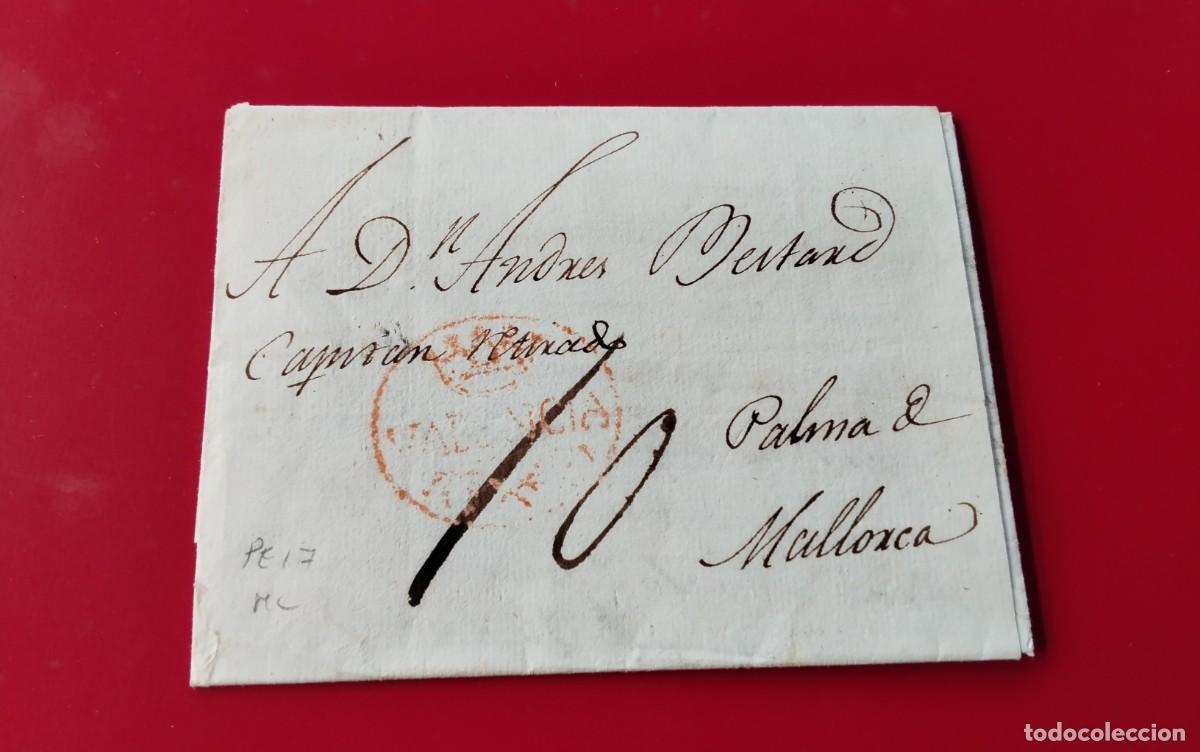 A D.n Andres Bestard
Capitan retirado
VALENCIA
10
Palma de
Mallorca
PE 17
MC
todocoleccion